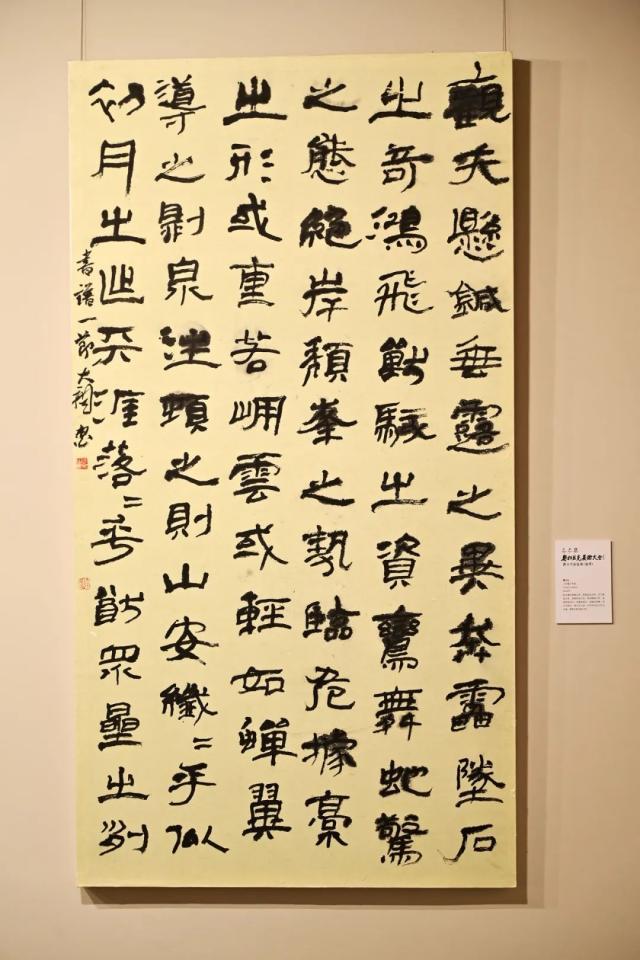 觀夫懸鍼垂露之異奔雷墜石
之奇鴻飛獸駭之資鸞舞虵驚
之態絕岸頹峯之勢臨危據槀
之形或重若崩雲或輕如蟬翼
導之則泉注頓之則山安纖〻乎似
初月之出天涯落〻乎猶眾星之列
書譜一節 大 書